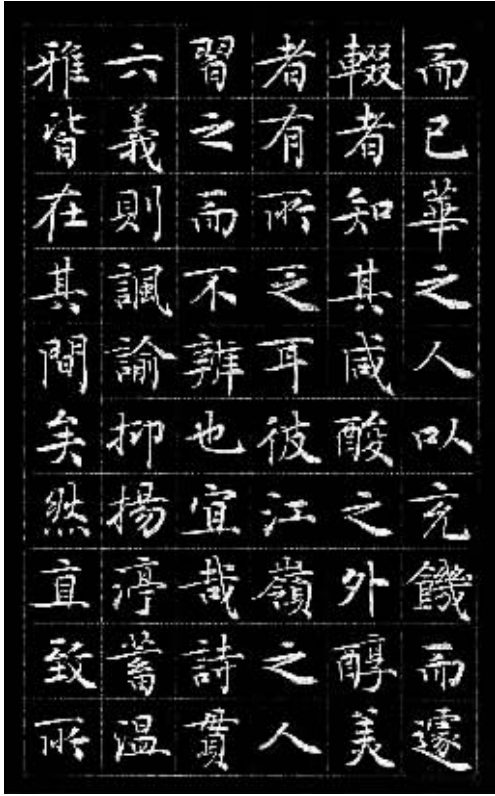 而已華之人以充饑而遽
輟者知其咸酸之外醇美
者有所乏耳彼江嶺之人
習之而不辨也宜哉詩貫
六義則諷諭抑揚渟蓄温
雅皆在其間矣然直致所